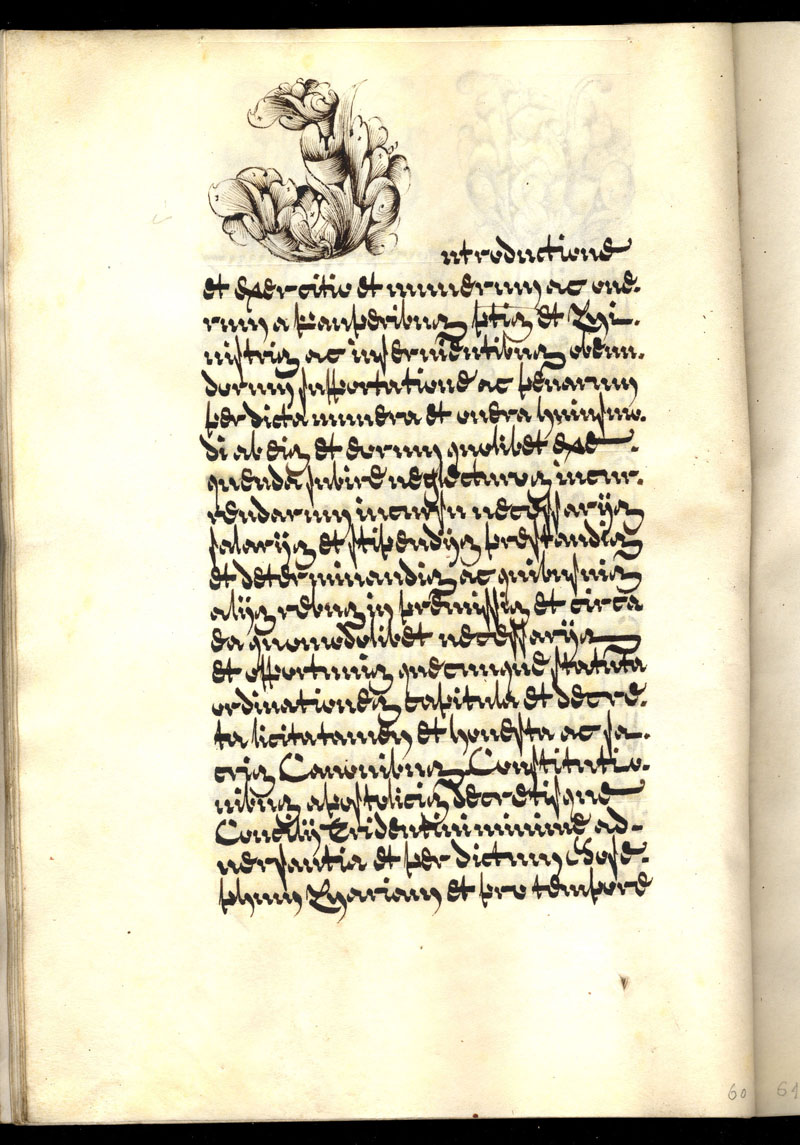 Introductione
et exercitio et munerum ac one.
rum a pauperibus ptis et Mi.
nistris ac inservientibus obeun.
dorum supportatione ac penarum
per dicta munera et onera huiusmo.
di ab eis et eorum quolibet exe.
quenda subire neglecturos incur.
rendarum incursu necessarijs
salarijs et stipendijs prestandis
et determinandis ac quibusuis
alijs rebus in premissis et circa
ea quomodolibet necessarijs
et opportunis quecunque statuta
ordinationes capitula et decre.
ta licita tamen et honesta ac sa.
cris Canonibus Constitutio.
nibus apostolicis decretisque
Concilij Tridentini minime ad-
uersantia et per dictum Jose.
phum Mariam et pro tempore
60 61